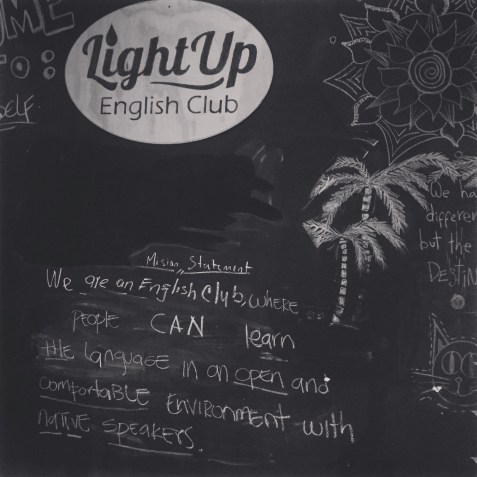 OME
TO:
SELF.
LightUp
English Club
Mision Statement
We are an English Club, WHERE
PEOPLE CAN learn
the language in an open and
comfortaBLE ENVIRONMENT with
Native SpeakeRS.
We ha
differen
but the
DESTIN